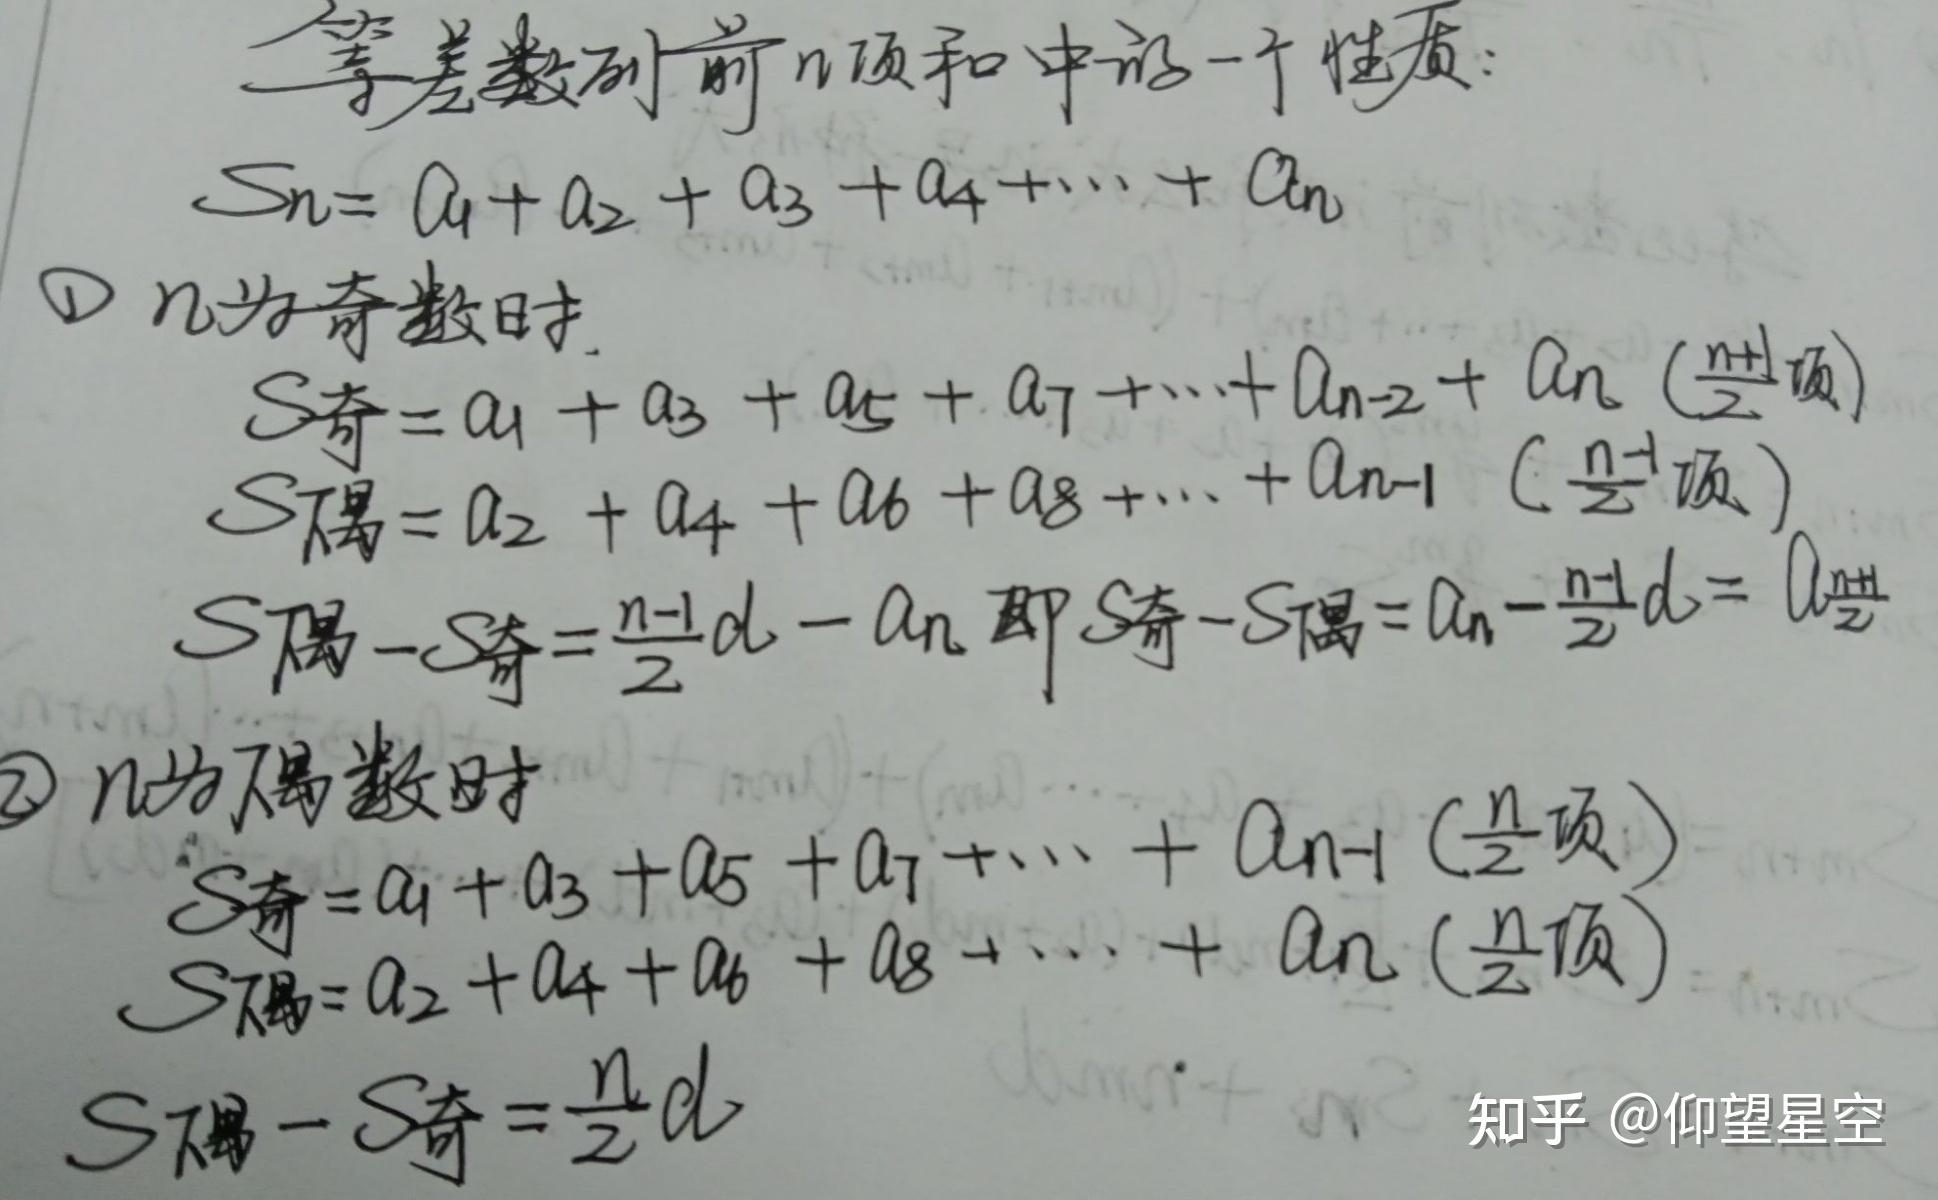 等差数列前n项和中的一个性质:
Sn=a1+a2+a3+a4+…+an
① n为奇数时.
S奇=a1+a3+a5+a7+…+an-2+an (n+1/2项)
S偶=a2+a4+a6+a8+…+an-1 (n-1/2项)
S偶-S奇=n-1/2d-an 即S奇-S偶=an-n-1/2d=an+1/2
② n为偶数时
S奇=a1+a3+a5+a7+…+an-1 (n/2项)
S偶=a2+a4+a6+a8+…+an (n/2项)
S偶-S奇=n/2d
知乎 @仰望星空